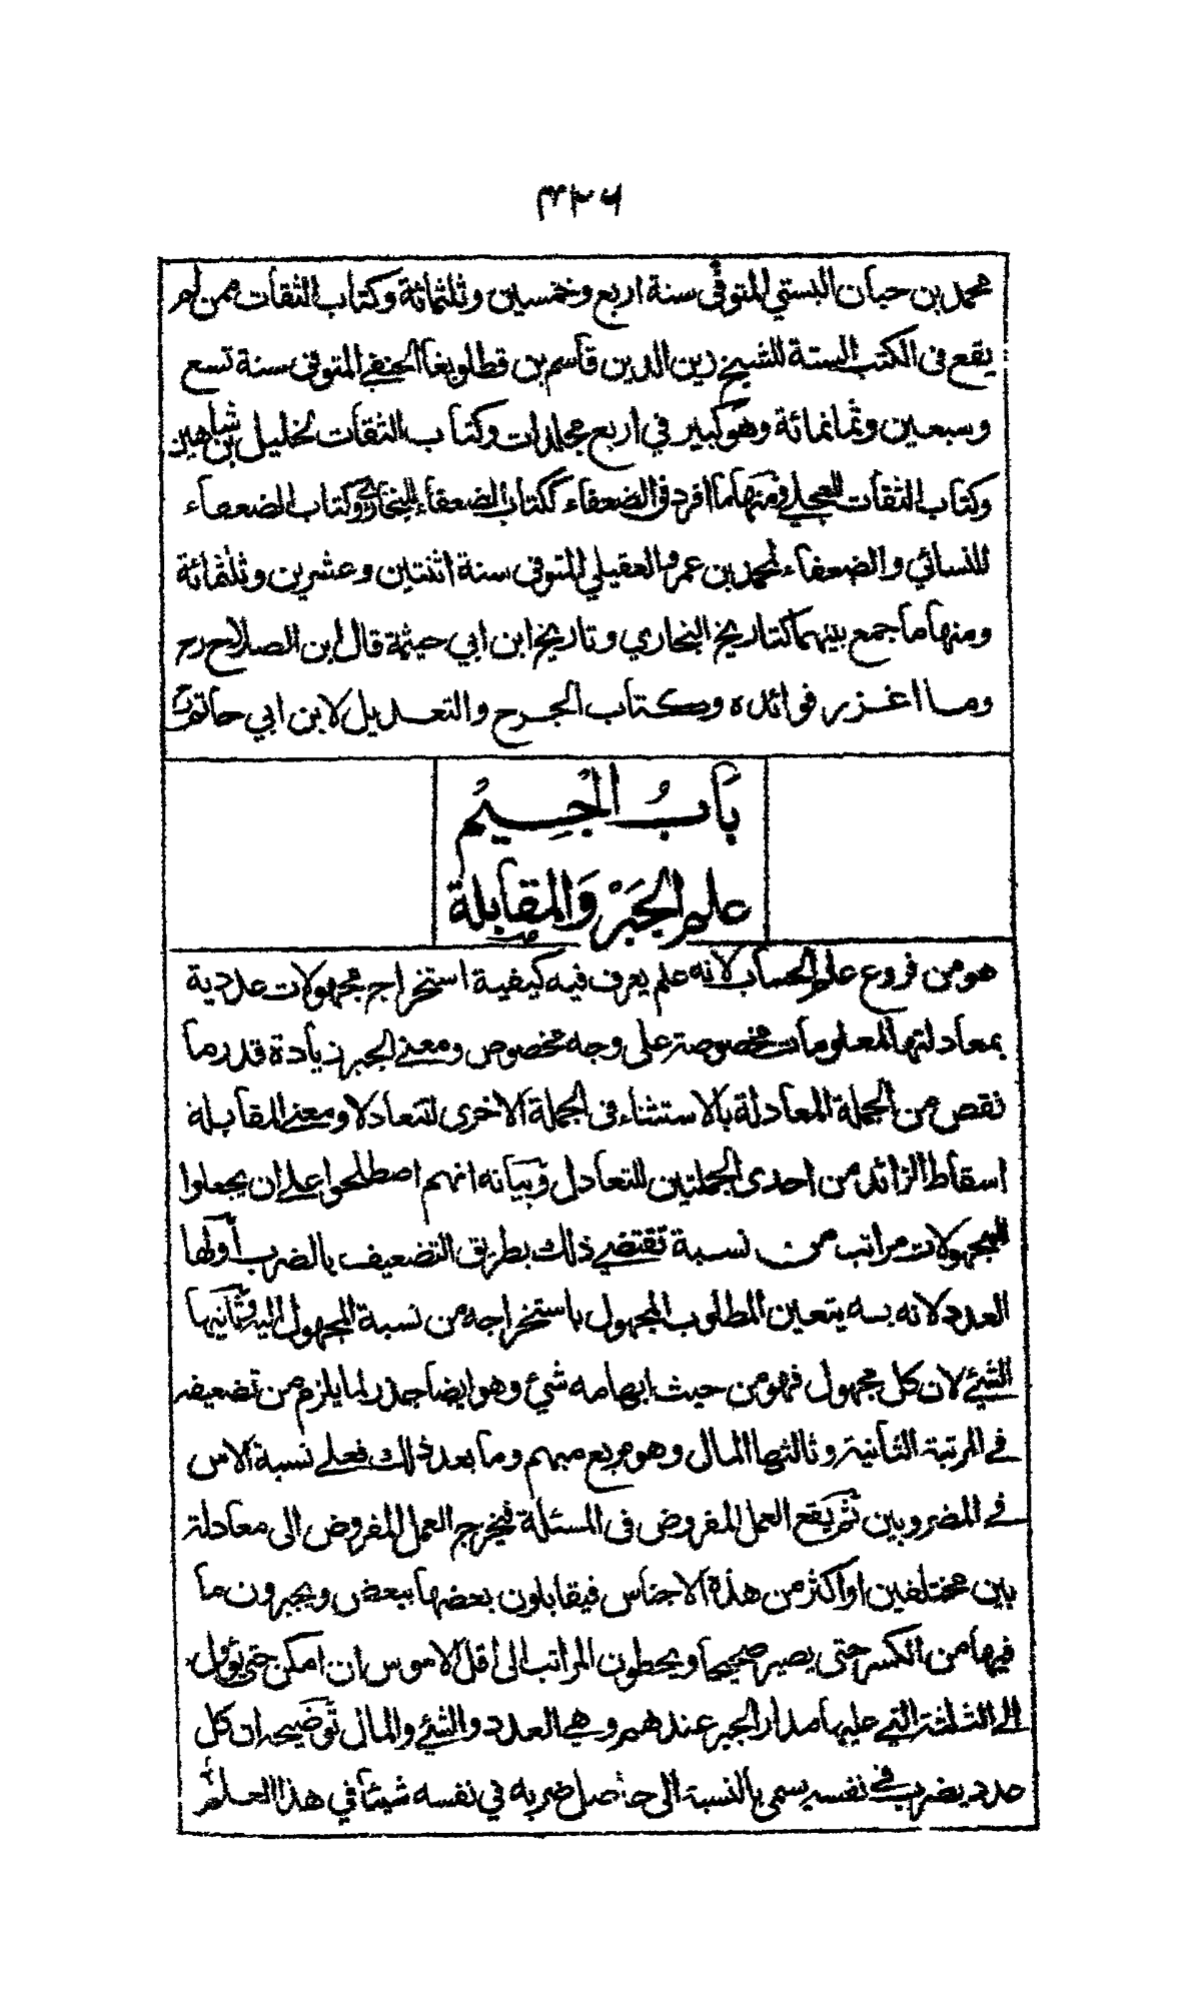 ٣٢٦
محمد بن حبان البستي المتوفى سنة اربع وخمسين وثلثمائة وكتاب الثقات ممن لم
يقع فى الكتب الستة للشيخ زين الدين قاسم بن قطلوبغا الحنفي المتوفى سنة تسع
وسبعين وثمانمائة وهو كبير في اربع مجلدات وكتاب الثقات لخليل بن شاهين
وكتاب الثقات للعجلي ومنها ما افرد فى الضعفاء ككتاب الضعفاء للبخاري وكتاب الضعفاء
للنسائي والضعفاء لمحمد بن عمرو العقيلي المتوفى سنة اثنتين وعشرين وثلثمائة
ومنها ما جمع بينهما كتاريخ البخاري وتاريخ ابن ابي خيثمة قال ابن الصلاح رح
وما اغزر فوائده وكتاب الجرح والتعديل لابن ابي حاتم
باب الجيم
علم الجبر والمقابلة
هو من فروع علم الحساب لانه علم يعرف فيه كيفية استخراج مجهولات عددية
بمعادلتها لمعلومات مخصوصة على وجه مخصوص ومعنى الجبر زيادة قدر ما
نقص من الجملة المعادلة بالاستثناء فى الجملة الاخرى لتتعادلا ومعنى المقابلة
اسقاط الزائد من احدى الجملتين للتعادل وبيانه انهم اصطلحوا على ان يجعلوا
للمجهولات مراتب من نسبة تقتضي ذلك بطريق التضعيف بالضرب أولها
العدد لانه به يتعين المطلوب المجهول باستخراجه من نسبة المجهول اليه وثانيها
الشيء لان كل مجهول فهو من حيث ابهامه شيء وهو ايضا جذر لما يلزم من تضعيفه
في المرتبة الثانية وثالثها المال وهو مربع مبهم وما بعد ذلك فعلى نسبة الاس
في المضروبين ثم يقع العمل المفروض فى المسئلة فيخرج العمل المفروض الى معادلة
بين مختلفين او اكثر من هذه الاجناس فيقابلون بعضها ببعض ويجبرون ما
فيها من الكسر حتى يصير صحيحا ويحطون المراتب الى اقل الاسوس ان امكن حتى يؤول
الى الثلثة التي عليها مدار الجبر عندهم وهي العدد والشيء والمال توضيحه ان كل
عدد يضرب في نفسه يسمى بالنسبة الى حاصل ضربه في نفسه شيئا في هذا العلم